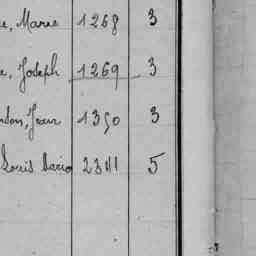 e, Marie 1268 3
e, Joseph 1269 3
ndon, Jean 1350 3
Louis Dario 2311 5